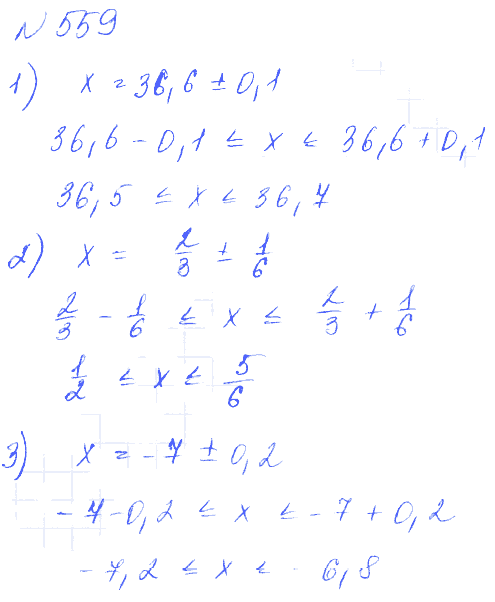 N 559
1) x = 36,6 ± 0,1
36,6 - 0,1 ≤ x ≤ 36,6 + 0,1
36,5 ≤ x ≤ 36,7
2) x = 2/3 ± 1/6
2/3 - 1/6 ≤ x ≤ 2/3 + 1/6
1/2 ≤ x ≤ 5/6
3) x = -7 ± 0,2
-7 - 0,2 ≤ x ≤ -7 + 0,2
-7,2 ≤ x ≤ -6,8